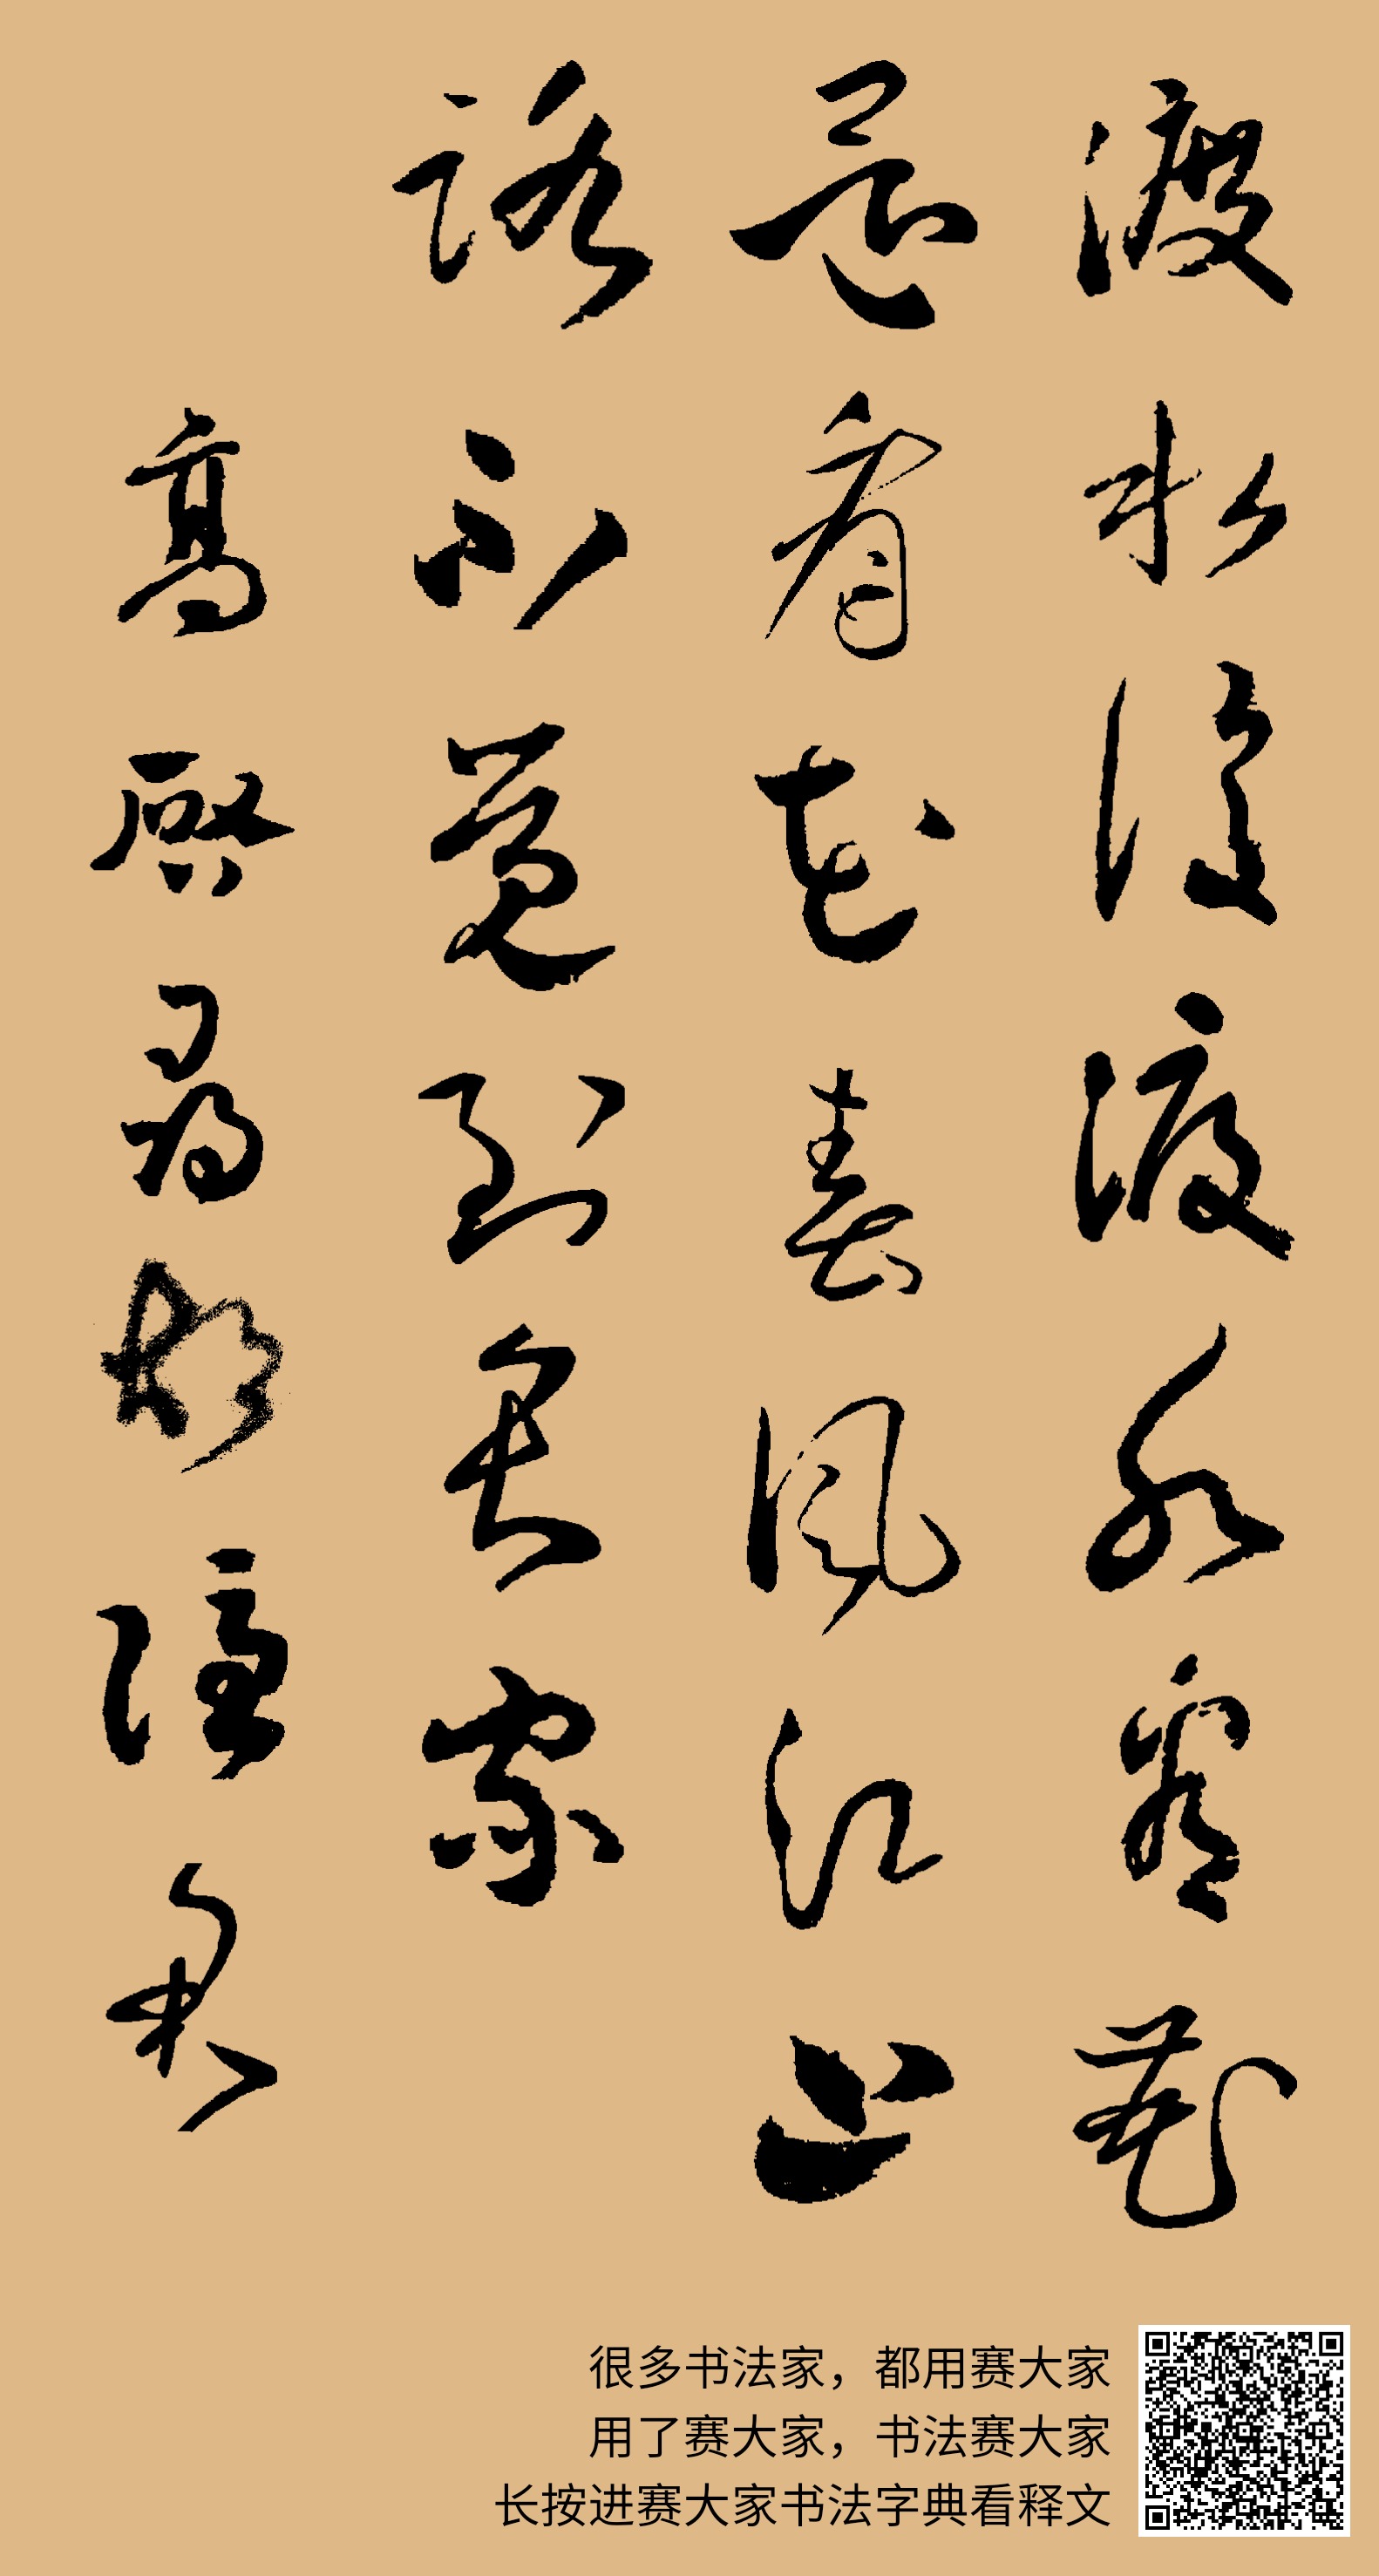 渡水復渡水看花
還看花春風江上
路不覺到君家
高啓尋胡隱君
很多书法家，都用赛大家
用了赛大家，书法赛大家
长按进赛大家书法字典看释文